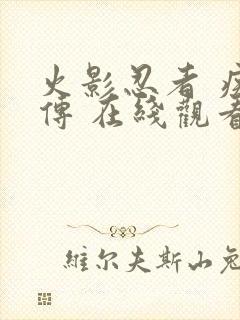 火影忍者 疾
傳 在綫觀看
維尔夫斯山兔